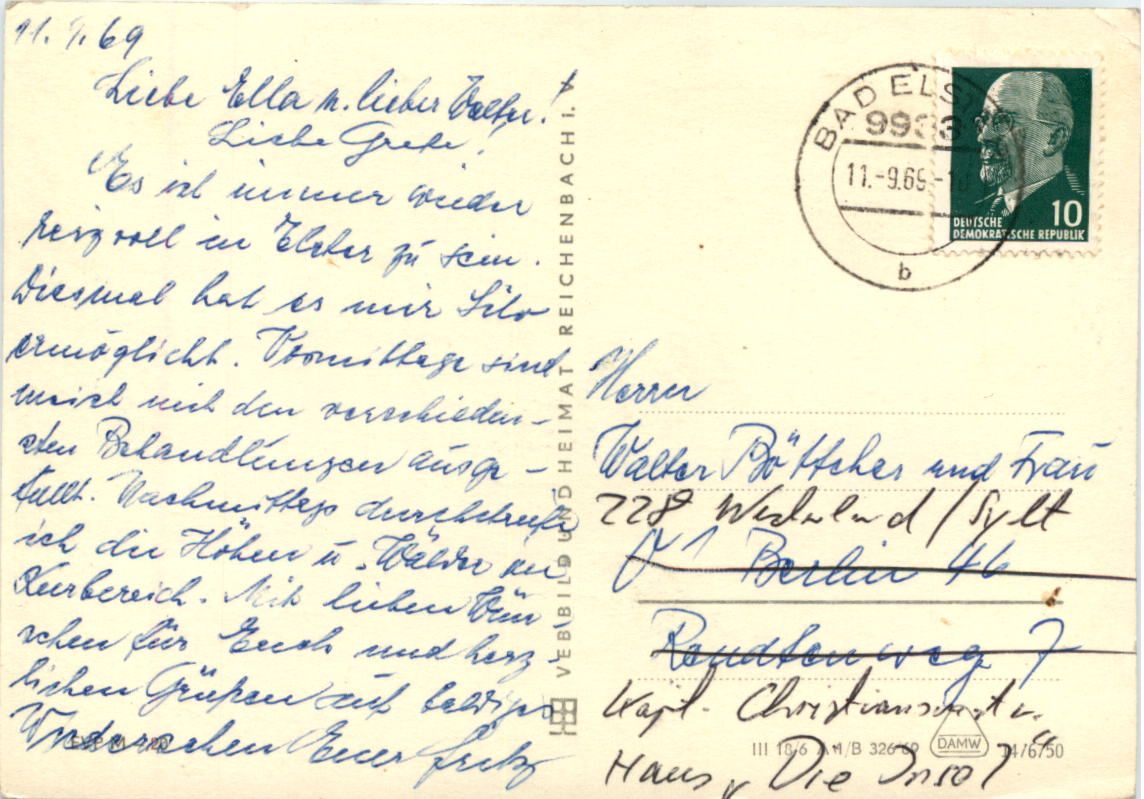 11.9.69
Liebe Ella u. lieber Walter!
Liebe Grete!
Es ist immer wieder
reizvoll in Elster zu sein.
Diesmal hat es mir Silv
ermöglicht. Vormittage sind
meist mit den verschieden-
sten Behandlungen ausge-
füllt. Nachmittags durchstreife
ich die Höhen u. Wälder im
Kurbereich. Mit lieben Wün-
schen für Euch und herz-
lichen Grüßen auf baldiges
Wiedersehen Euer Fritz
VEB BILD UND HEIMAT REICHENBACH i. V.
BAD ELST
9933
11.-9.69-10
b
10
DEUTSCHE
DEMOKRATISCHE REPUBLIK
Herrn
Walter Böttcher und Frau
228 Westerland / Sylt
1 Berlin 46
Reudtenweg 7
Kapt. Christiansenstr.
Haus „Die Insel"
III 18/6 A 1/B 326/69 DAMW 14/6/50